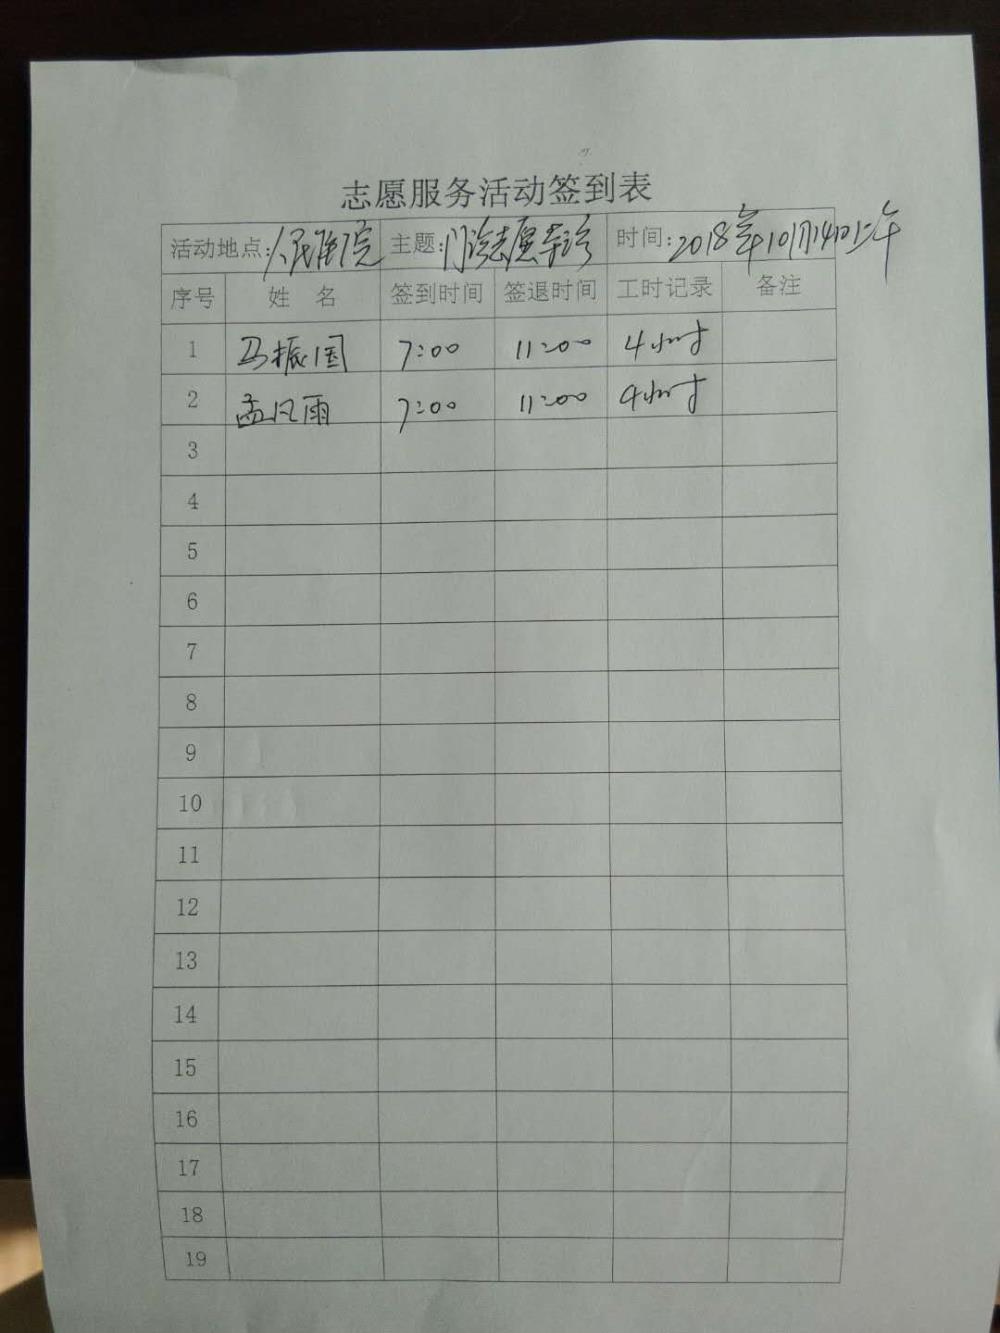 志愿服务活动签到表
活动地点:人民医院 主题:门诊志愿导诊 时间:2018年10月14日上午
序号 姓 名 签到时间 签退时间 工时记录 备注
1 马振国 7:00 11:00 4小时
2 孟凡雨 7:00 11:00 4小时
3
4
5
6
7
8
9
10
11
12
13
14
15
16
17
18
19